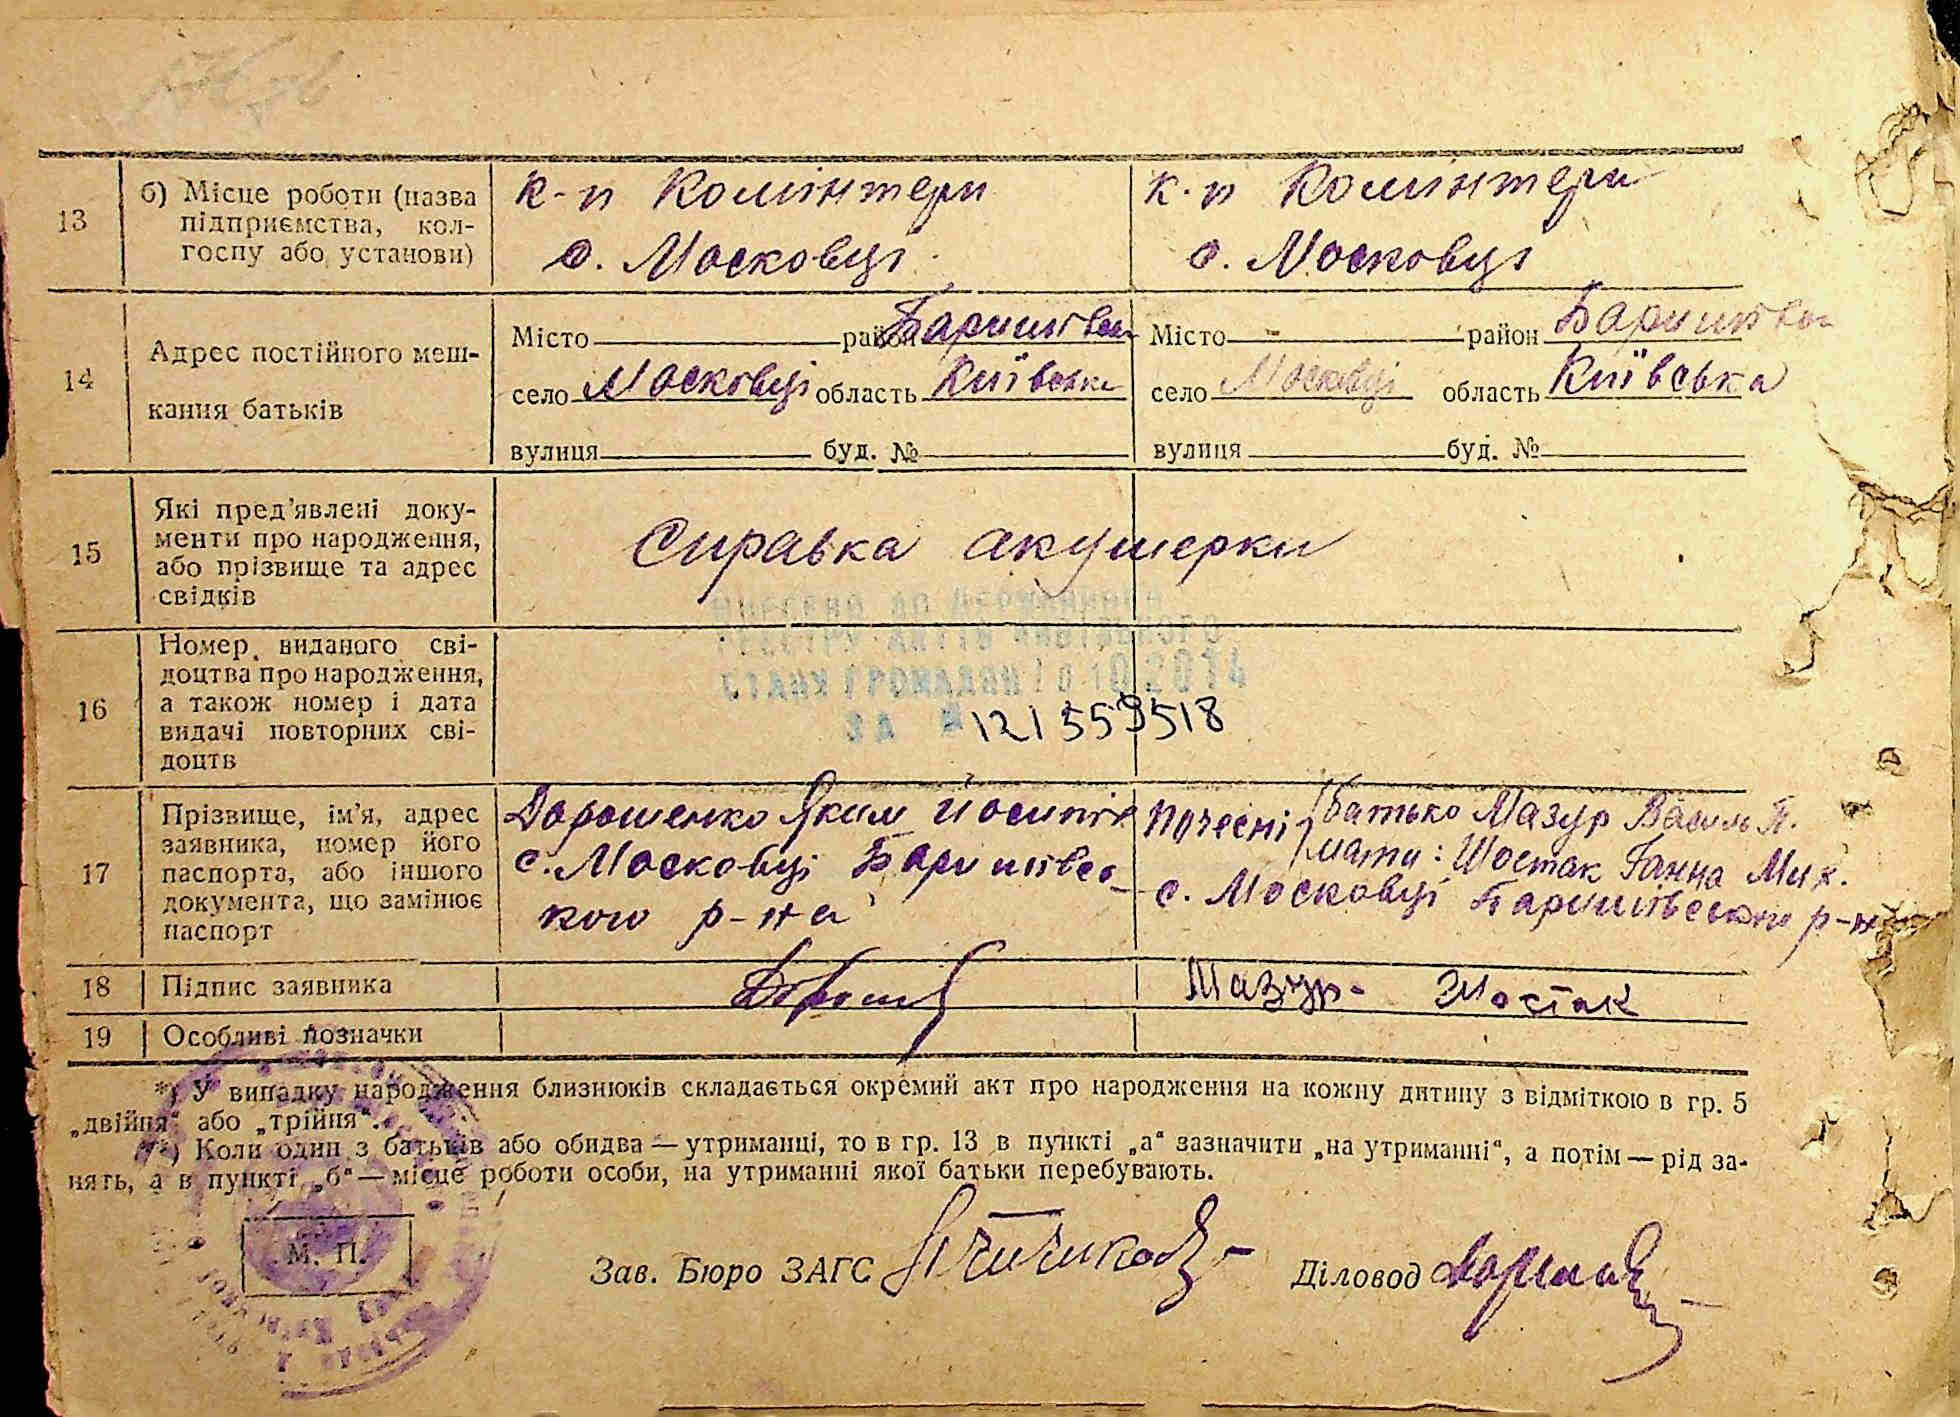 13
б) Місце роботи (назва
підприємства, кол-
госпу або установи)
к-п Комінтерн
с. Московці
к-п Комінтерн
с. Московці
14
Адрес постійного меш-
кання батьків
Місто район Баришівськ
село Московці область Київська
вулиця буд. №
Місто - район Баришівськ
село Московці область Київська
вулиця буд. №
15
Які пред'явлені доку-
менти про народження,
або прізвище та адрес
свідків
Справка акушерки
16
Номер виданого сві-
доцтва про народження,
а також номер і дата
видачі повторних сві-
доцтв
ВНЕСЕНО ДО ДЕРЖАВНОГО
РЕЄСТРУ АКТІВ ЦИВІЛЬНОГО
СТАНУ ГРОМАДЯН 10 10 2014
ЗА № 121559518
17
Прізвище, ім'я, адрес
заявника, номер його
паспорта, або іншого
документа, що замінює
паспорт
Дорошенко Яким Йосипів
с. Московці Баришівсь-
кого р-на
Почесні батько Мазур Василь П.
мати: Шостак Ганна Мих.
с. Московці Баришівського р-н
18
Підпис заявника
Мазур- Шостак
19
Особливі позначки
*) У випадку народження близнюків складається окремий акт про народження на кожну дитину з відміткою в гр. 5
„двійня“ або „трійня“.
**) Коли один з батьків або обидва — утриманці, то в гр. 13 в пункті „а“ зазначити „на утриманні“, а потім — рід за-
нять, а в пункті „б“ — місце роботи особи, на утриманні якої батьки перебувають.
М. П.
Зав. Бюро ЗАГС
Діловод